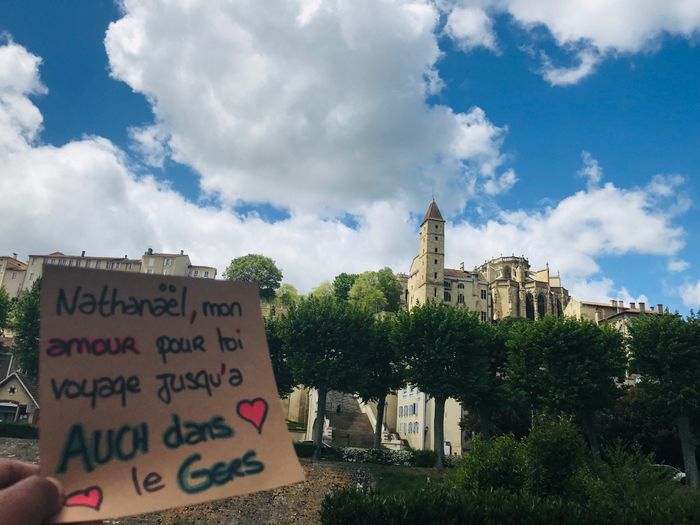 Nathanaël, mon
amour pour toi
voyage jusqu'a
AUCH dans
le Gers